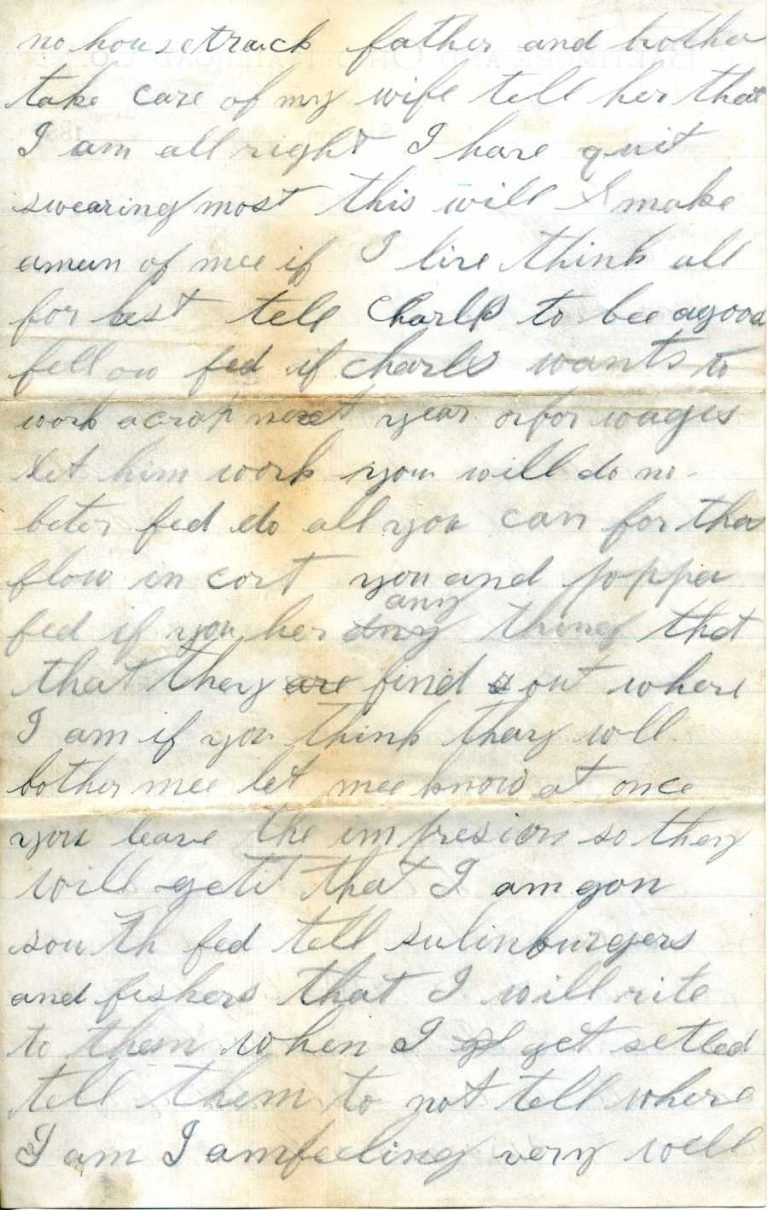 no housetrack father and brother
take care of my wife tell her that
I am all right I have quit
swearing most this will make
aman of mee if I live think all
for best tell Charls to bee agood
fellow fed if charls wants to
work acrop next year or for wages
let him work you will do no
beter fed do all you can for
in cort you and poppa
fed if you her any thing that
that they are find out where
I am if you think thay will
bother mee let mee know at once
you leave the impresion so they
will getit that I am gon
south fed tell sulinburgers
and fishers that I will rite
to them when I get setled
tell them to not tell where
I am I amfeeling very well